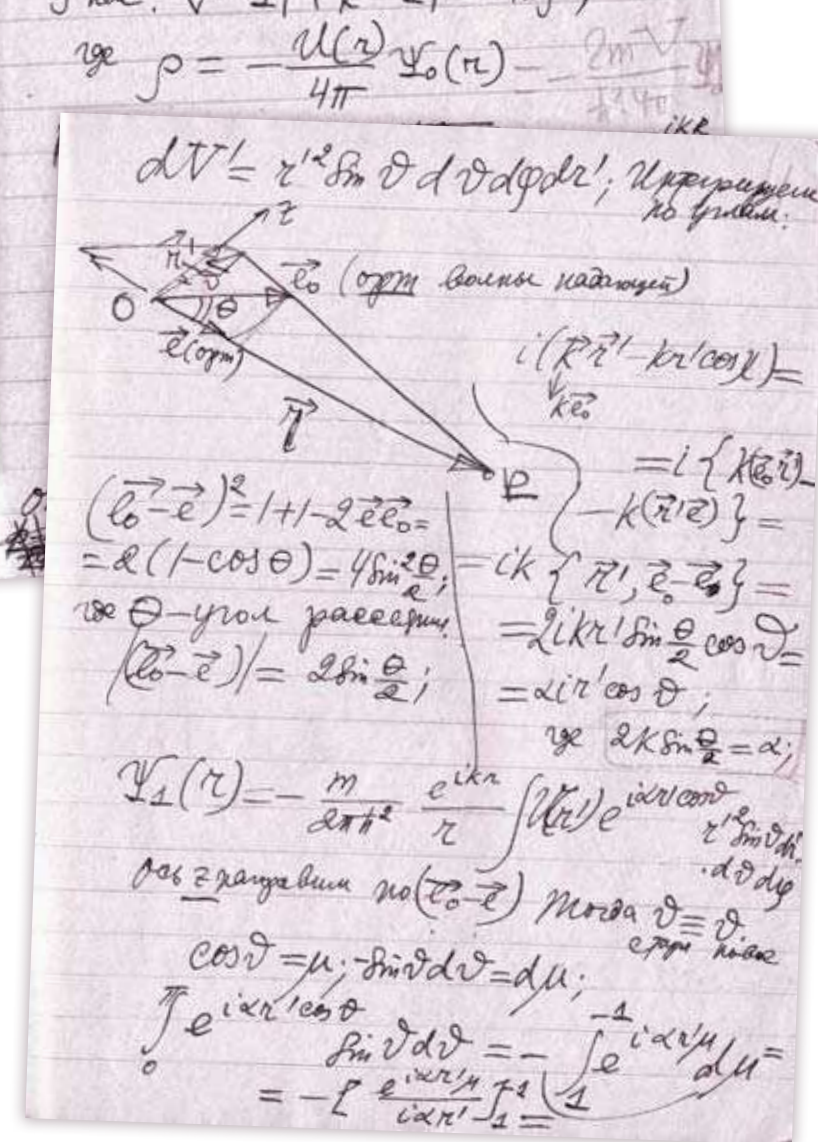 где ρ = - U(r)/4π Ψ₀(r)
dV' = r'² Sin ϑ dϑ dφ dr'; Интегрируем
по углам:
z
r' ϑ
e₀ (орт волны падающей)
O θ
e (орт)
r
P
i(k r' - kr' cos χ) =
ke₀
= i { k(e₀ r') -
- k(r' e) } =
= ik { r', e₀ - e } =
= 2ikr' Sin θ/2 cos ϑ =
= αir' cos ϑ ;
где 2k Sin θ/2 = α;
(e₀ - e)² = 1+1-2 e e₀ =
= 2(1-cos θ) = 4 Sin² θ/2;
где θ - угол рассеяния.
|(e₀ - e)| = 2 Sin θ/2;
Ψ₁(r) = - m/2πħ² e^{ikr}/r ∫ U(r') e^{iαr' cos ϑ} r'² Sin ϑ dr'
· dϑ dφ
Ось z направим по (e₀ - e) Тогда ϑ ≡ ϑ
cos ϑ = μ; -Sin ϑ dϑ = dμ;
∫₀^π e^{iαr' cos θ} Sin ϑ dϑ = - ∫₁^{-1} e^{iαr'μ} dμ =
= -[ e^{iαr'μ} / iαr' ]₁^{-1} =